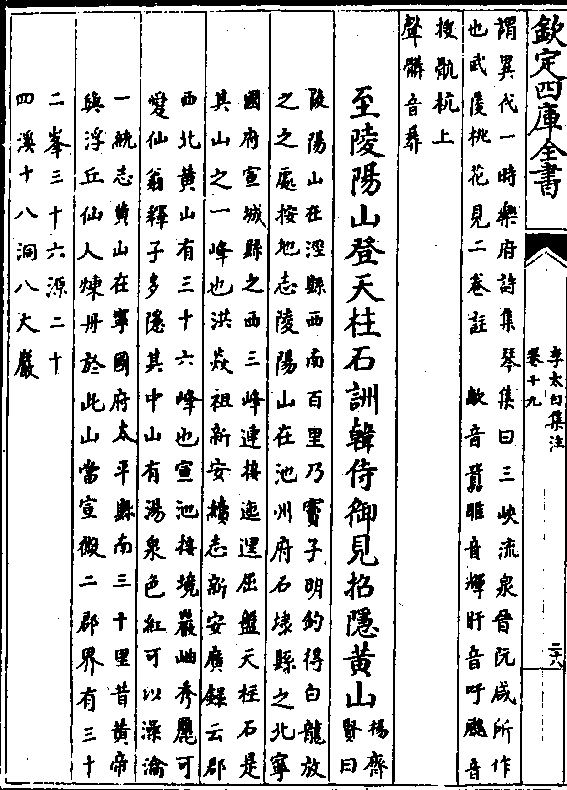 欽定四庫全書
李太白集注
卷十九
謂異代一時樂府詩集琴集曰三峽流泉晉阮咸所作
也武陵桃花見二卷註 歊音囂睢音輝盱音吁颼音
搜骯杭上
聲髒音葬
至陵陽山登天柱石詶韓侍御見招隱黃山
楊齊
賢曰
陵陽山在涇縣西南百里乃竇子明釣得白龍放
之之處按地志陵陽山在池州府石埭縣之北寧
國府宣城縣之西三峰連接迤邐屈盤天柱石是
其山之一峰也洪焱祖新安續志新安廣錄云郡
西北黃山有三十六峰也宣池接境巖岫秀麗可
愛仙翁釋子多隱其中山有湯泉色紅可以澡瀹
一統志黃山在寧國府太平縣南三十里昔黃帝
與浮丘仙人煉丹於此山當宣徽二郡界有三十
二峯三十六源二十
四溪十八洞八大巖